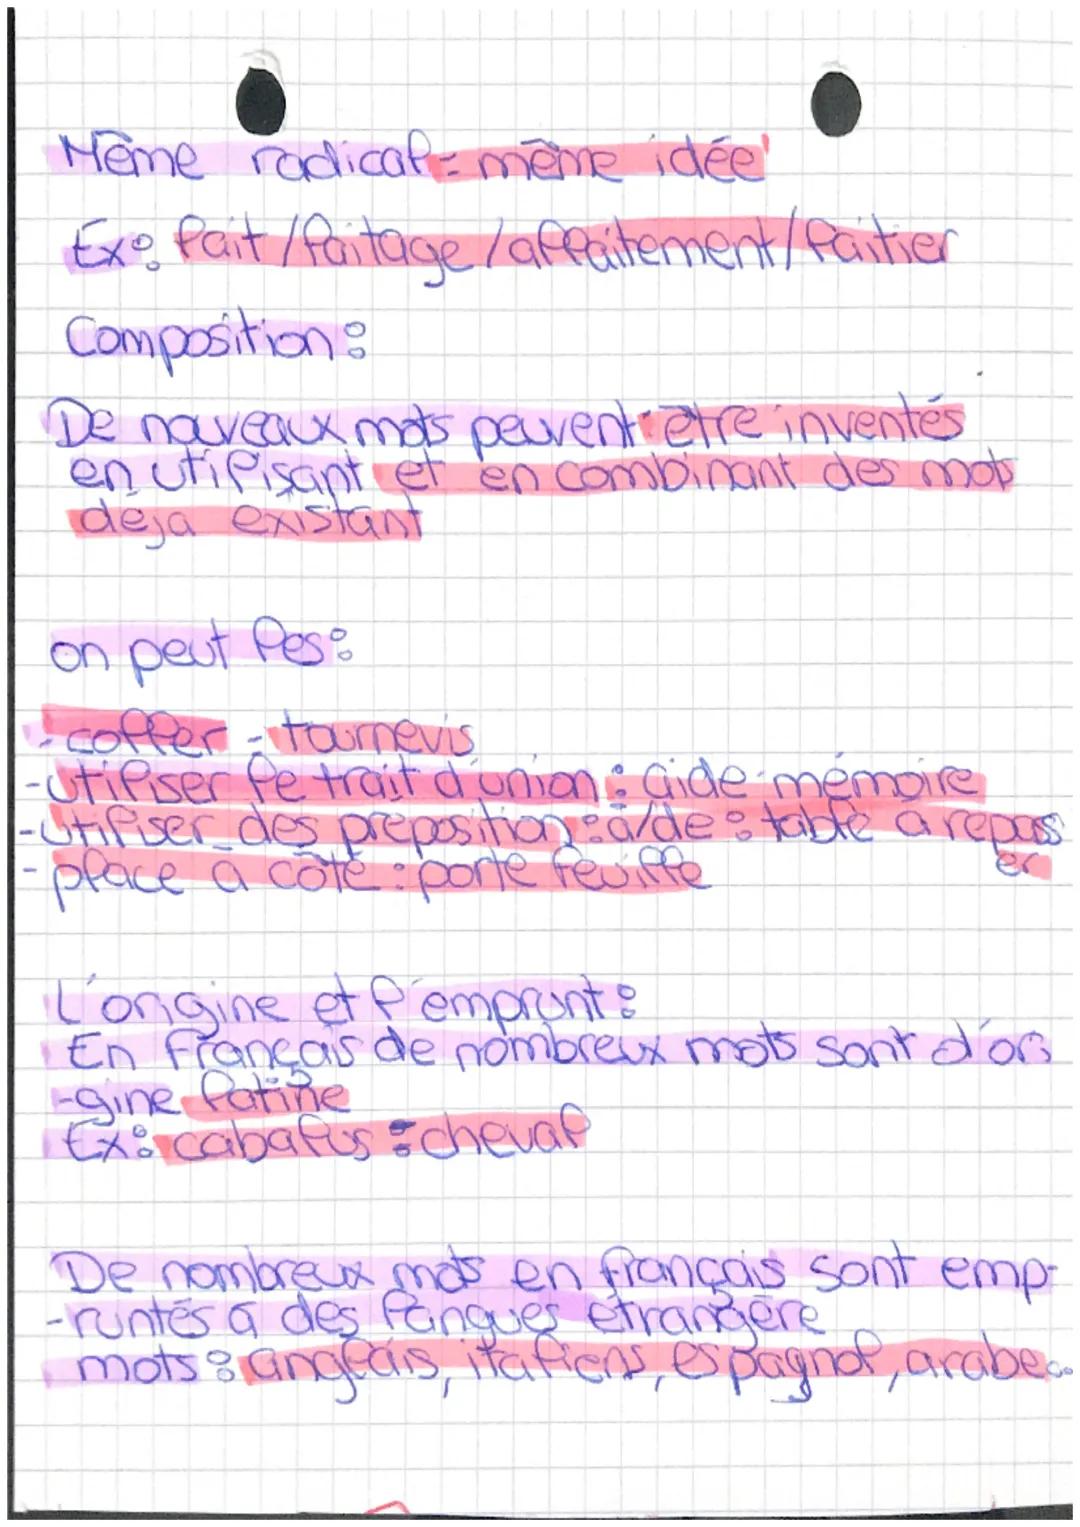 Même radical = même idée
Ex: lait / laitage / allaitement / laitier
Composition :
De nouveaux mots peuvent être inventés
en utilisant et en combinant des mots
déja existant
on peut les :
- coller - tournevis
- utiliser le trait d'union : aide-mémoire
- utiliser des préposition : a/de : table a repass
er
- place a côté : porte feuille
L'origine et l'emprunt :
En Français de nombreux mots sont d'ori
-gine latine
Ex: cabalus : cheval
De nombreux mots en français sont emp-
-runtés a des langues étrangère
mots : anglais, italiens, espagnol, arabe...